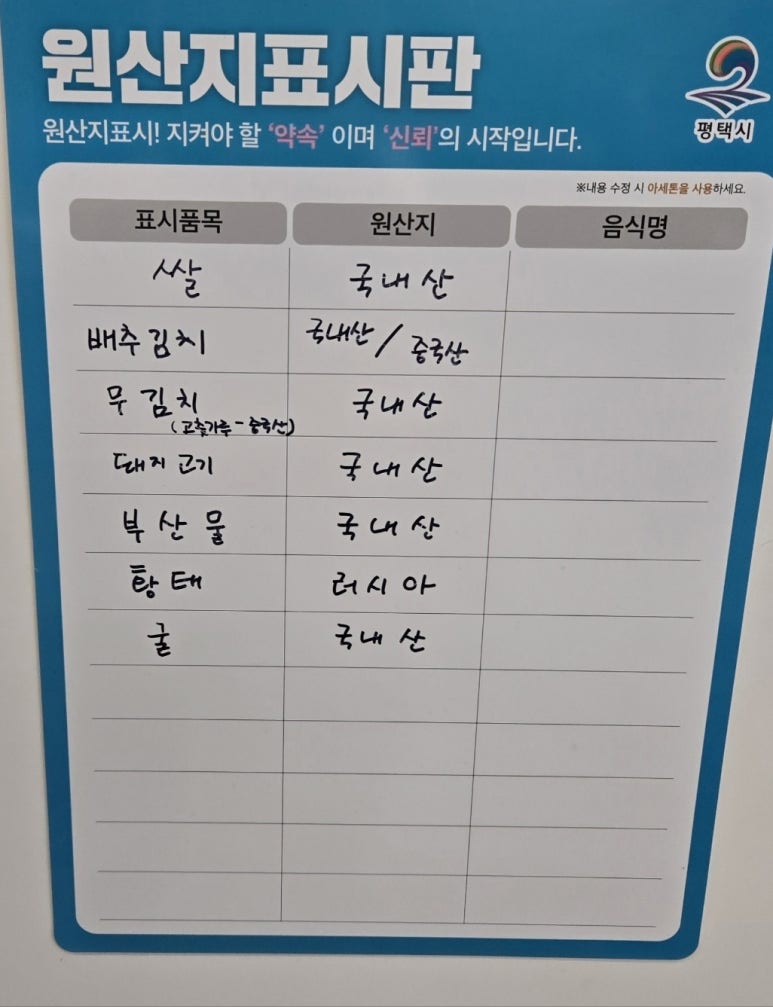 원산지표시판
원산지표시! 지켜야 할 '약속' 이며 '신뢰'의 시작입니다.
평택시
※내용 수정 시 아세톤을 사용하세요.
표시품목 원산지 음식명
쌀 국내산
배추김치 국내산 / 중국산
무김치 국내산
(고춧가루-중국산)
돼지고기 국내산
부산물 국내산
황태 러시아
굴 국내산